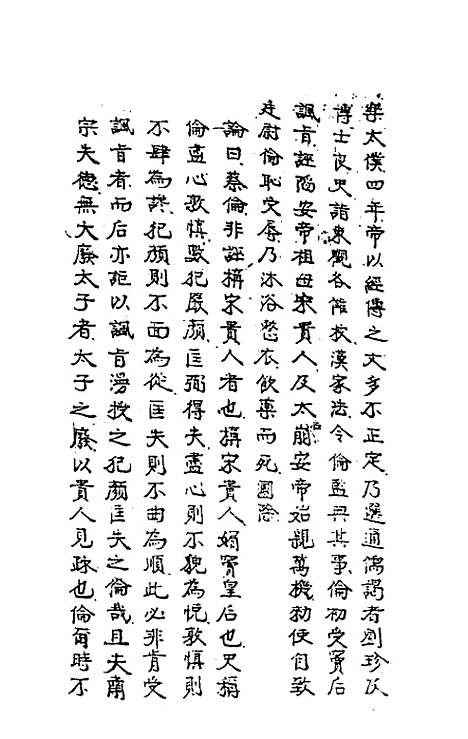 樂太僕四年帝以經傳之文多不正定乃選通儒謁者劉珍及
博士良史詣東觀各讎校漢家法令倫監典其事倫初受竇后
諷旨誣陷安帝祖母宋貴人及太后崩安帝始親萬機勑使自致
廷尉倫恥受辱乃沐浴整衣飲藥而死國除
論曰蔡倫非誣搆宋貴人者也搆宋貴人媚竇皇后也史稱
倫盡心敦慎數犯嚴顏匡弼得失盡心則不貌為悅敦慎則
不肆為諛犯顏則不面為從匡失則不曲為順此必非肯受
諷旨者而后亦詎以諷旨漫授之犯顏匡失之倫哉且夫肅
宗失德無大廢太子者太子之廢以貴人見疎也倫爾時不